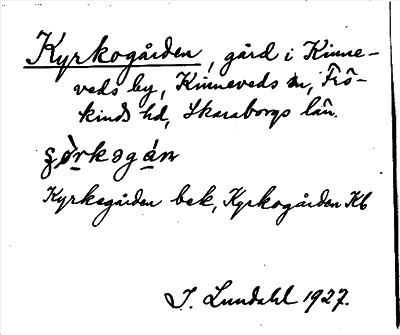 Kyrkogården, gård i Kinne-
veds by, Kinneveds sn, Frö-
kinds hd, Skaraborgs län.
Kyrkegården bek, Kyrkogården Kb
I. Lundahl 1927.